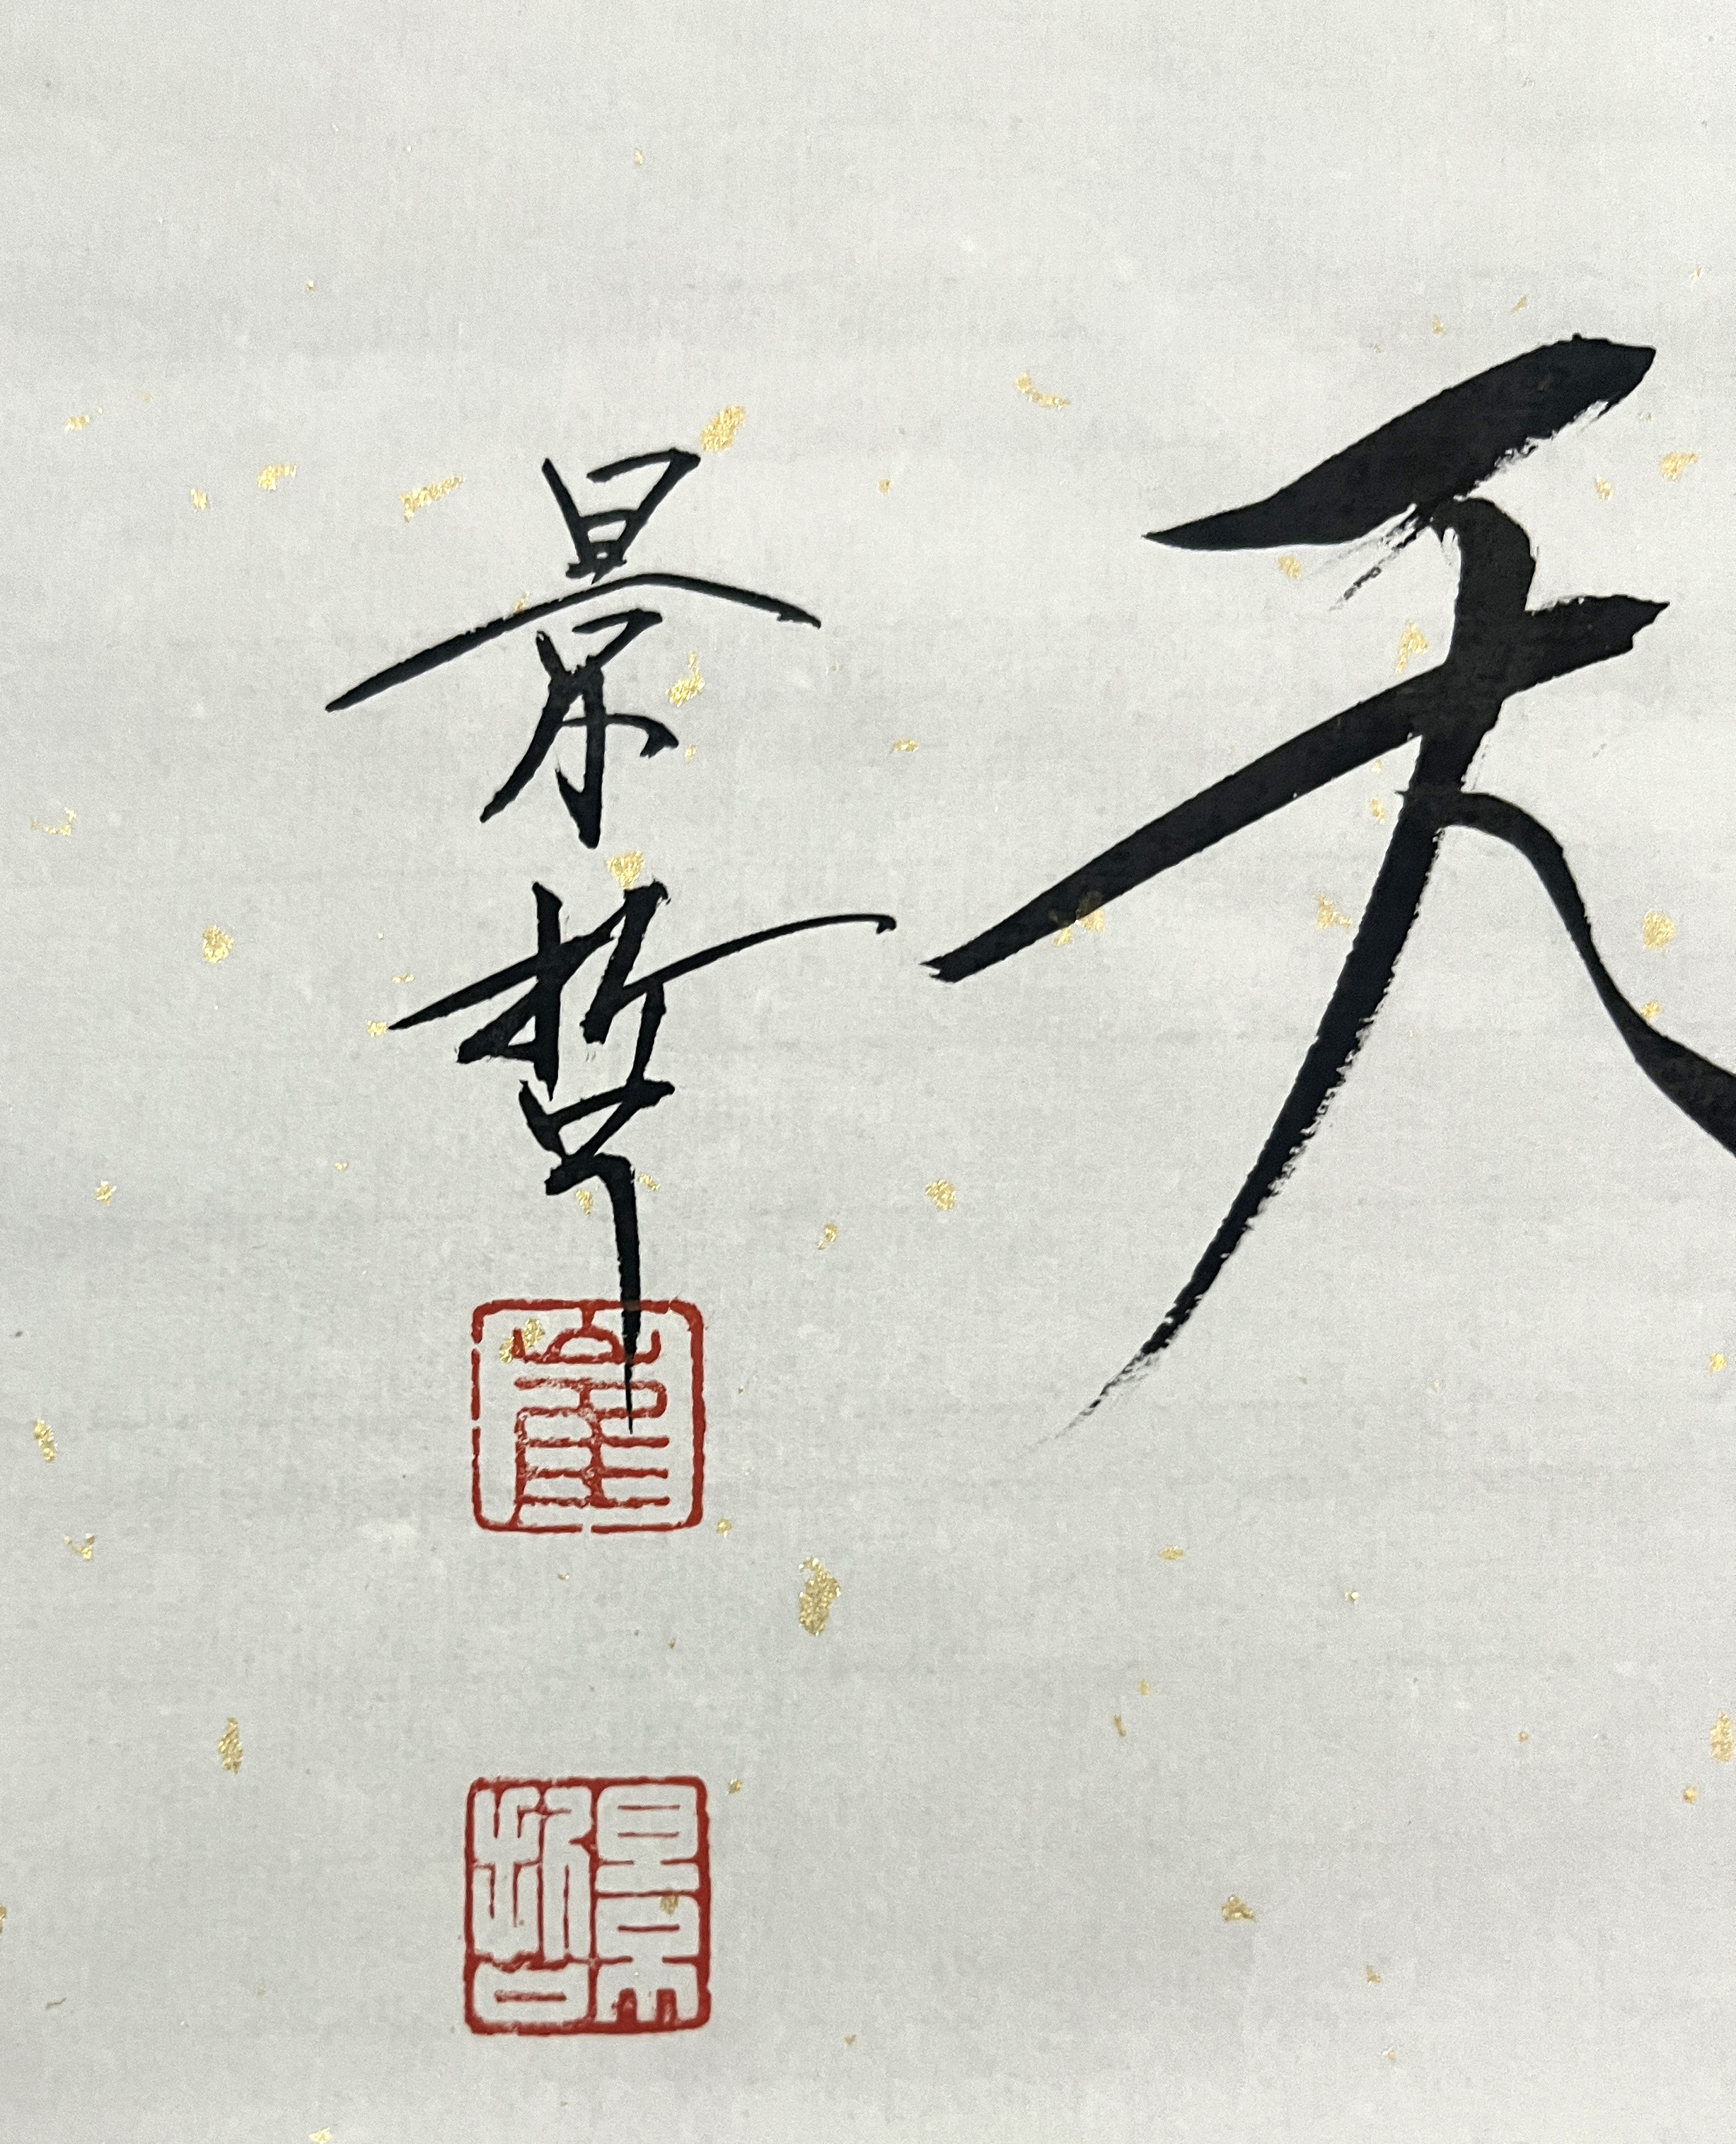 天
景哲
崔
景哲